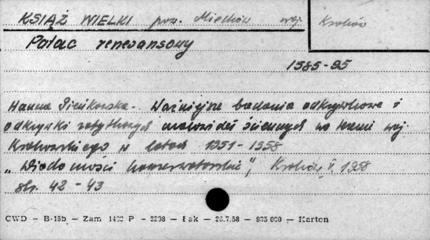 KSIĄŻ WIELKI pow. Miechów woj. Kraków
Pałac renesansowy
1585-95
Hanna Pieńkowska - Ważniejsze badania odkrywkowe i
odkrycki zabytkowych malowideł ściennych na terenie woj.
Krakowskiego w latach 1951-1958
„Wiadomości konserwatorskie", Kraków, 1958
str. 42-43
CWD - B-15b - Zam - Pak - 26.7.58 - Karton